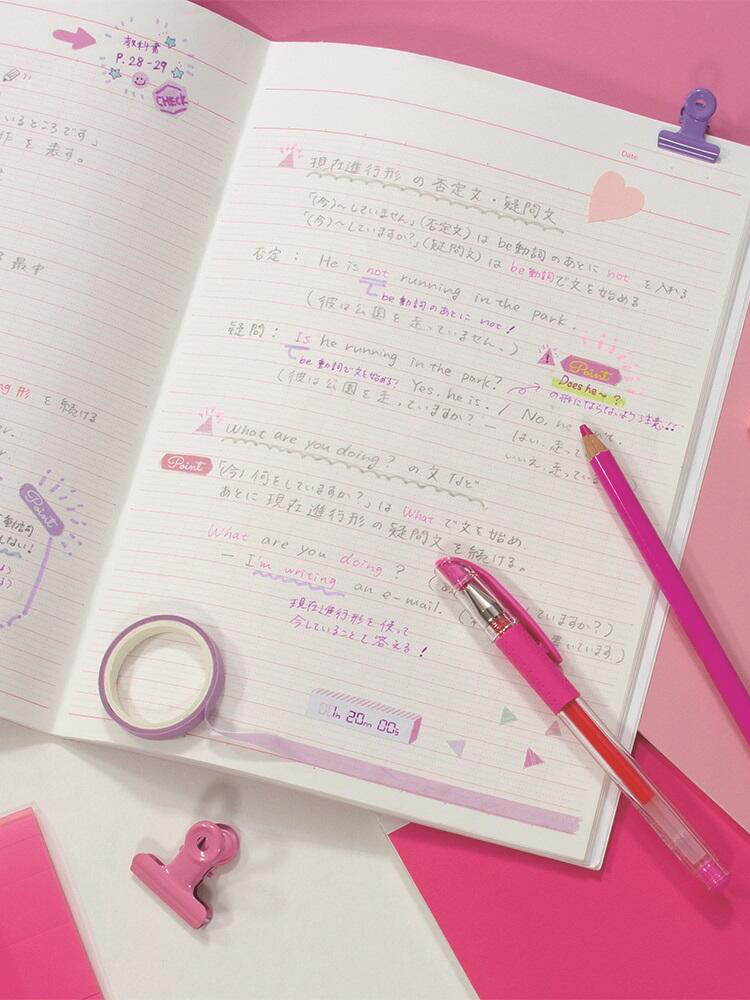 教科書
P.28-29
CHECK
いるところです」
を表す。
最中
形 を続ける
Point
動詞
しない!
Date
現在進行形 の 否定文・疑問文
「(今)〜していません」(否定文) は be動詞のあとに not を入れる
「(今)〜していますか?」(疑問文) は be動詞で文を始める
否定: He is not running in the park.
be動詞のあとに not!
(彼は公園を走っていません。)
疑問: Is he running in the park?
be動詞で文を始める? Yes, he is. / No, he
(彼は公園を走っていますか? ー はい、走って
いいえ、走って
Point
Does he〜?
の形にならないよう注意!!
What are you doing? の文など
Point
「(今)何をしていますか?」は What で文を始め、
あとに現在進行形の疑問文を続ける。
What are you doing?
していますか?)
ー I'm writing an e-mail.
書いています。)
現在進行形を使って
今していることを答える!
00h 20m 00s